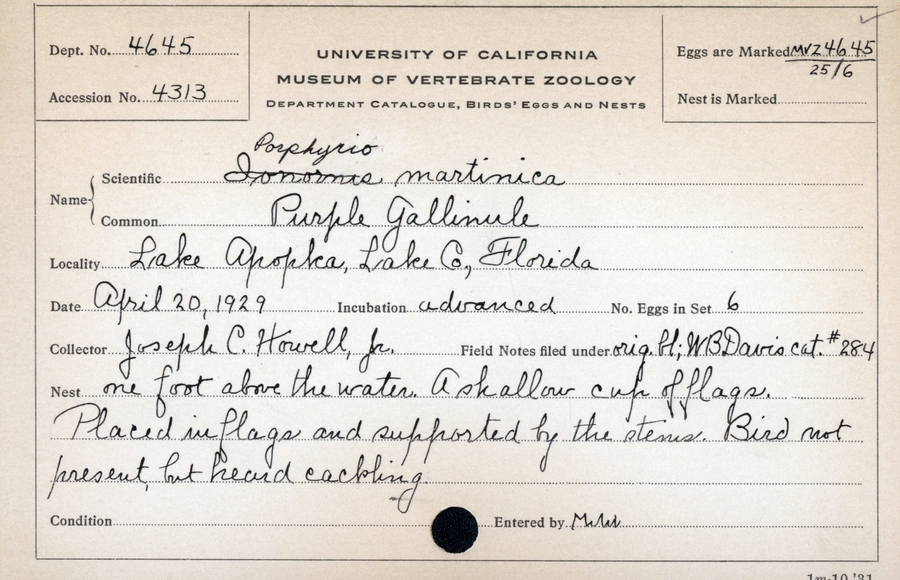 Dept. No. 4645
Accession No. 4313
UNIVERSITY OF CALIFORNIA
MUSEUM OF VERTEBRATE ZOOLOGY
DEPARTMENT CATALOGUE, BIRDS' EGGS AND NESTS
Eggs are Marked MVZ4645
25/6
Nest is Marked
Porphyrio
Name Scientific Ionornis martinica
Common Purple Gallinule
Locality Lake Apopka, Lake Co., Florida
Date April 20, 1929 Incubation advanced No. Eggs in Set 6
Collector Joseph C. Howell, Jr. Field Notes filed under orig. bl; WBDavis cat. #284
Nest one foot above the water. A shallow cup of flags.
Placed in flags and supported by the stems. Bird not
present, but heard cackling.
Condition Entered by
1m-10,'31